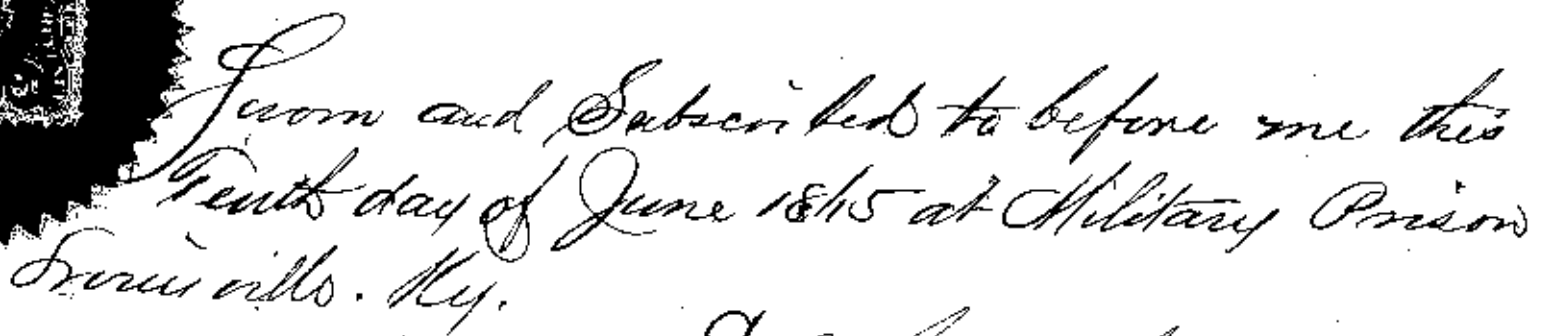 Sworn and Subscribed to before me this
Tenth day of June 1865 at Military Prison
Louisville. Ky.